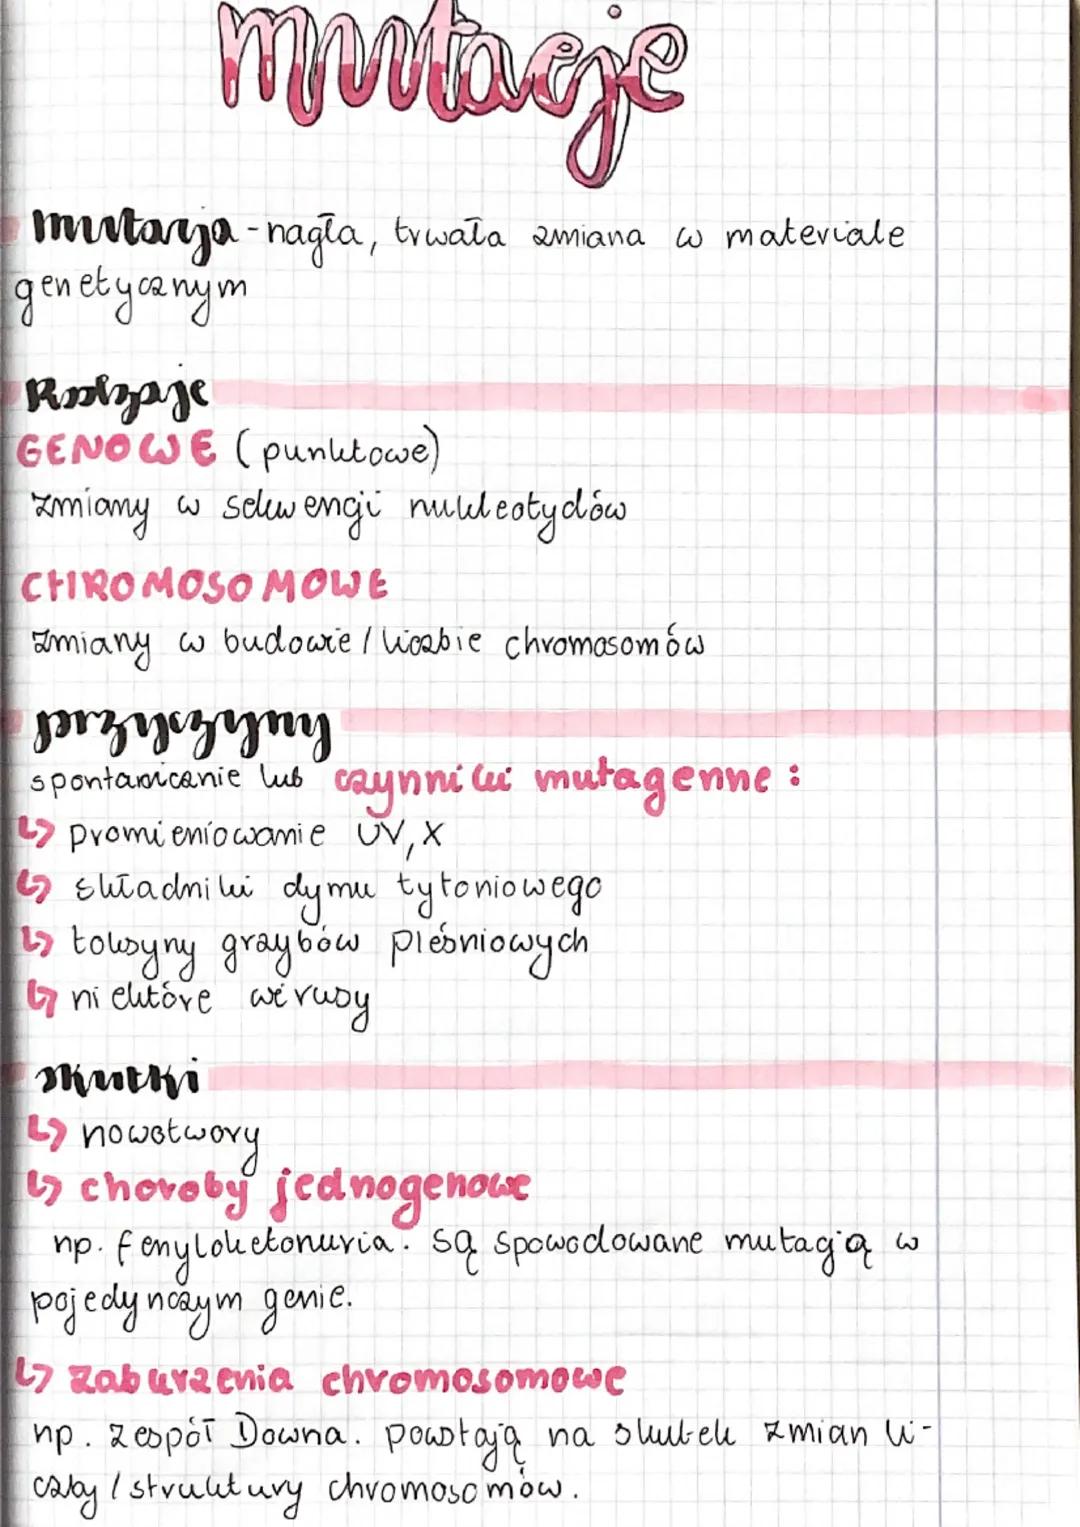 mutacje
mutacja - nagła, trwała zmiana w materiale
genetycznym
Rodzaje
GENOWE (punktowe)
zmiany w sekwencji nukleotydów
CHROMOSOMOWE
zmiany w budowie / liczbie chromosomów
przyczyny
spontanicznie lub czynniki mutagenne :
↳ promieniowanie UV, X
↳ składniki dymu tytoniowego
↳ toksyny grzybów pleśniowych
↳ niektóre wirusy
skutki
↳ nowotwory
↳ choroby jednogenowe
np. fenyloketonuria. są spowodowane mutacją w
pojedynczym genie.
↳ zaburzenia chromosomowe
np. zespół Downa. powstają na skutek zmian li-
czby / struktury chromosomów.